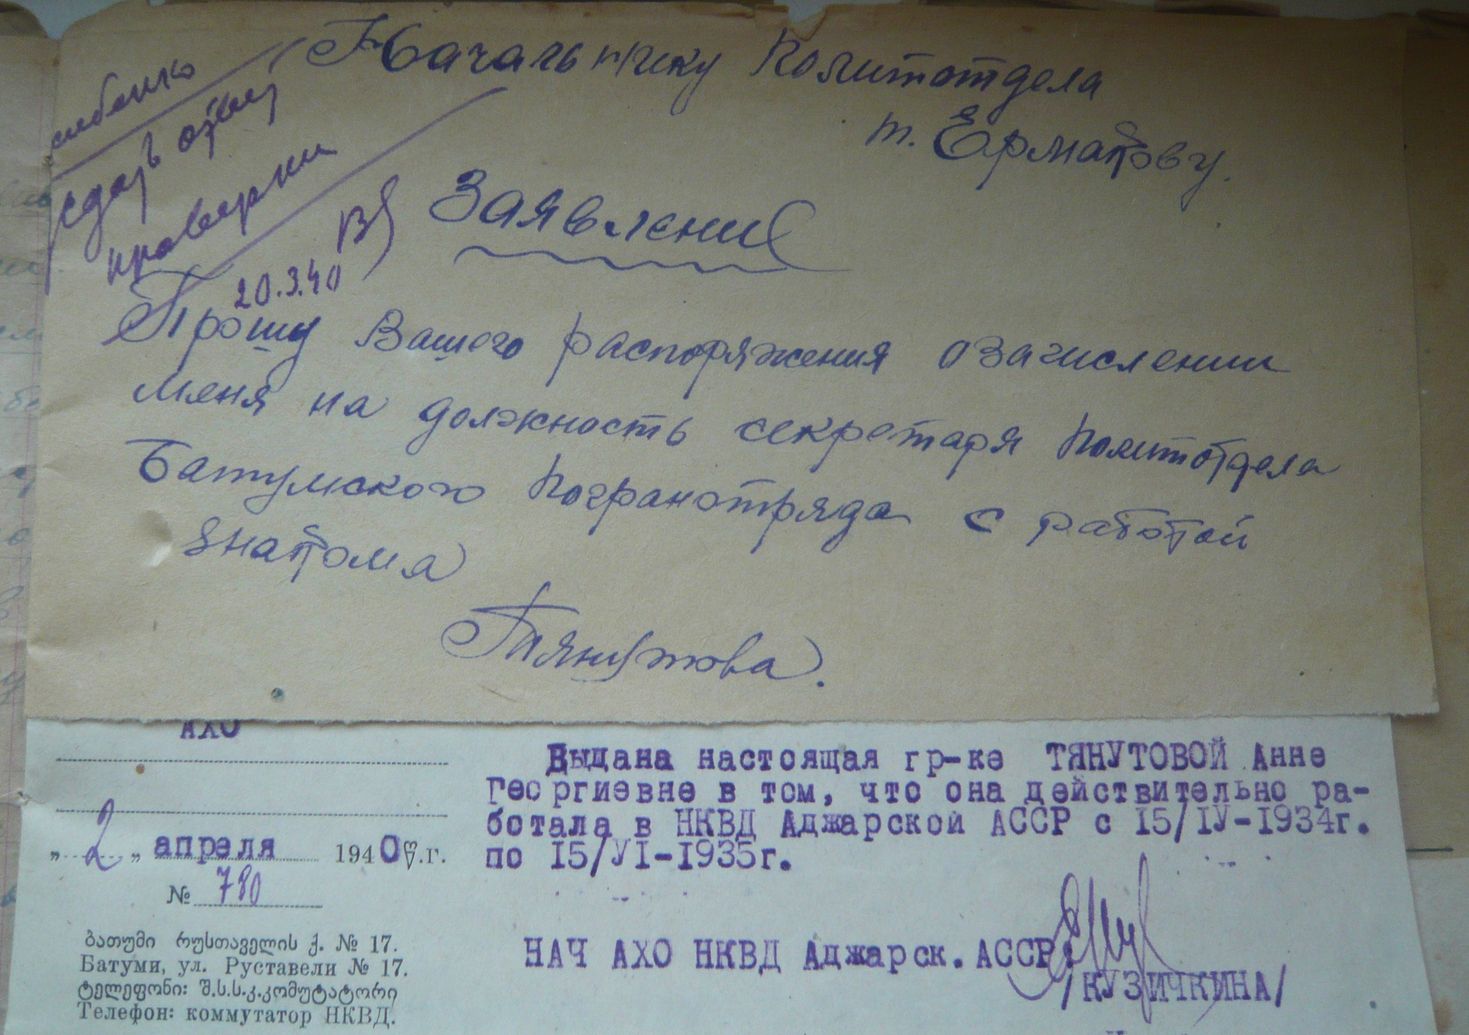 Начальнику Политотдела
т. Ермакову.
Заявление
проверки
20.3.40
Прошу Вашего распоряжения о зачислении
меня на должность секретаря Политотдела
Батумского Погранотряда с работой
знакома
Тянутова.
АХО
„ 2 „ апреля 1940 წ.г.
№ 780
ბათუმი რუსთაველის ქ. № 17.
Батуми, ул. Руставели № 17.
ტელეფონი: შ.ს.ს.კ.კომუტატორი
Телефон: коммутатор НКВД.
Выдана настоящая гр-ке ТЯНУТОВОЙ Анне
Георгиевне в том, что она действительно ра-
ботала в НКВД Аджарской АССР с 15/IУ-1934г.
по 15/УІ-1935г.
НАЧ АХО НКВД Аджарск. АССР:
/КУЗИЧКИНА/